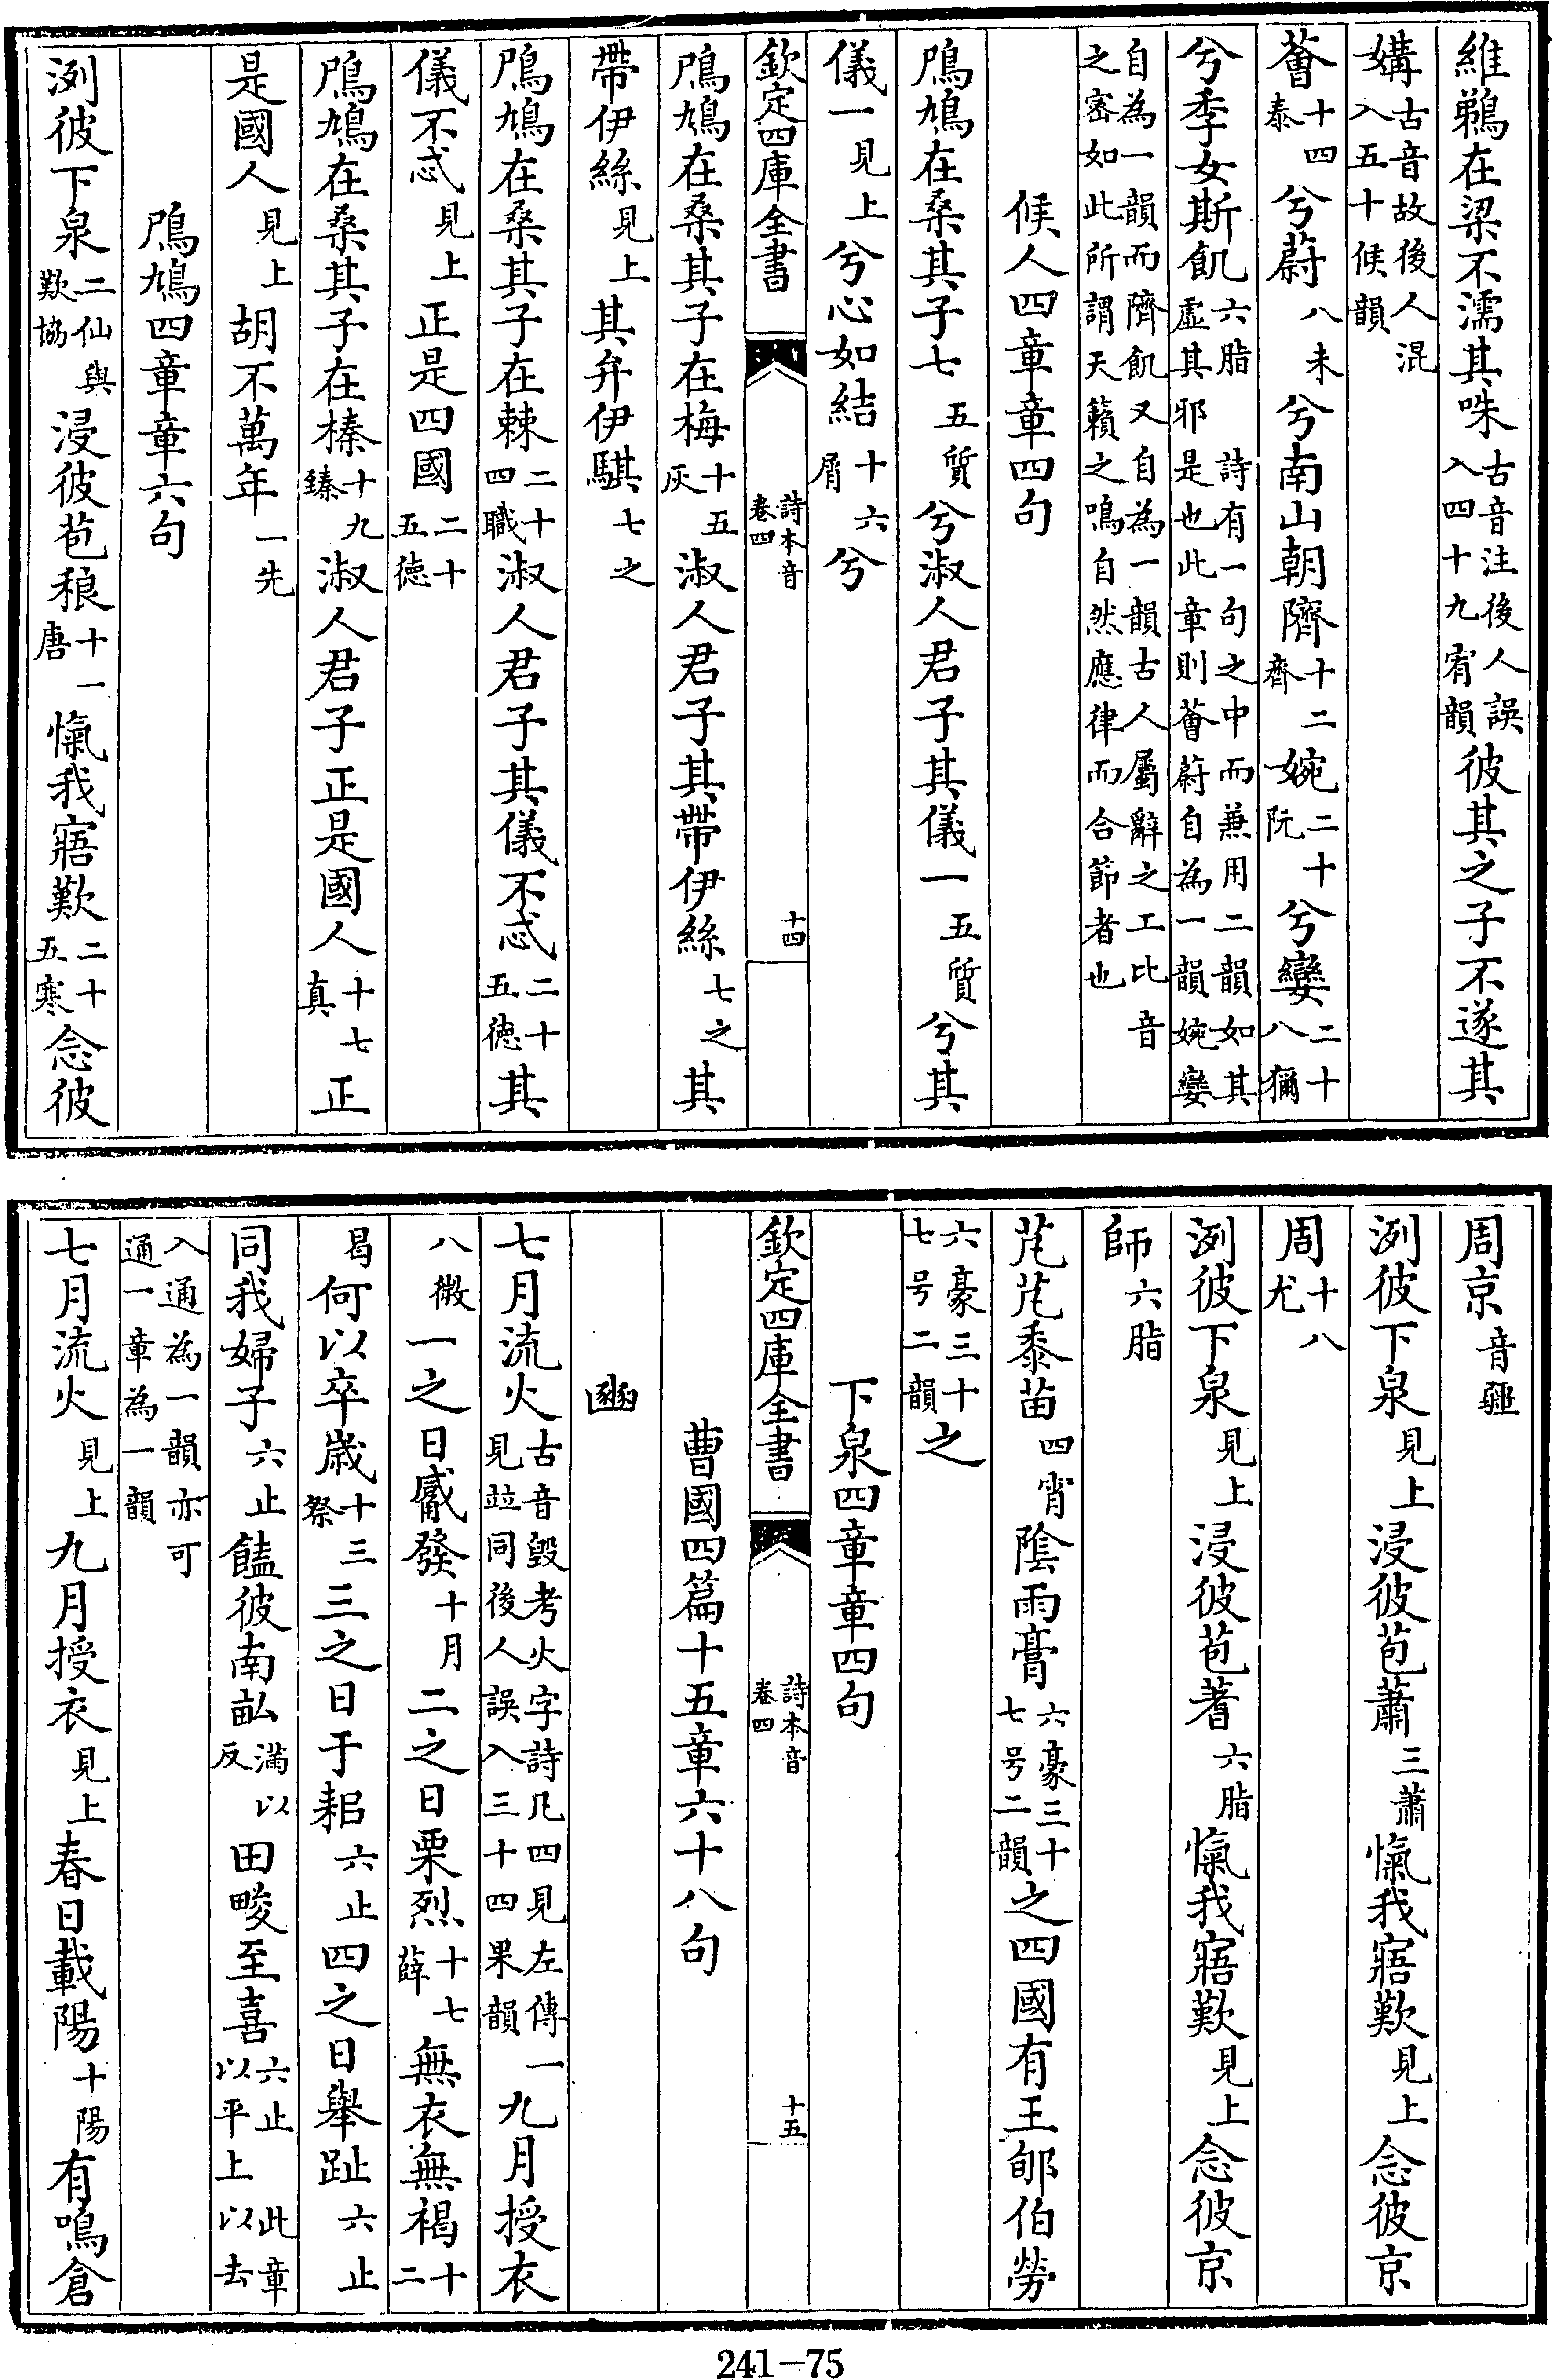 維鵜在梁不濡其咮古音注後人誤入四十九宥韻彼其之子不遂其
媾古音故後人混入五十候韻
薈十四泰兮蔚八未兮南山朝隮十二齊婉二十阮兮孌二十八獮
兮季女斯飢六脂詩有一句之中而兼用二韻如其虛其邪是也此章則薈蔚自為一韻婉孌
自為一韻而隮飢又自為一韻古人屬辭之工比音之密如此所謂天籟之鳴自然應律而合節者也
候人四章章四句
鳲鳩在桑其子七五質兮淑人君子其儀一五質兮其
儀一見上兮心如結十六屑兮
欽定四庫全書 詩本音卷四 十四
鳲鳩在桑其子在梅十五灰淑人君子其帶伊絲七之其
帶伊絲見上其弁伊騏七之
鳲鳩在桑其子在棘二十四職淑人君子其儀不忒二十五德其
儀不忒見上正是四國二十五德
鳲鳩在桑其子在榛十九臻淑人君子正是國人十七真正
是國人見上胡不萬年一先
鳲鳩四章章六句
洌彼下泉二仙與歎協浸彼苞稂十一唐愾我寤歎二十五寒念彼
周京音疆
洌彼下泉見上浸彼苞蕭三蕭愾我寤歎見上念彼京
周十八尤
洌彼下泉見上浸彼苞蓍六脂愾我寤歎見上念彼京
師六脂
芃芃黍苗四宵陰雨膏六豪三十七号二韻之四國有王郇伯勞
六豪三十七号二韻之
下泉四章章四句
欽定四庫全書 詩本音卷四 十五
曹國四篇十五章六十八句
豳
七月流火古音毀考火字詩凡四見左傳一見竝同後人誤入三十四果韻九月授衣
八微一之日觱發十月二之日栗烈十七薛無衣無褐十二
曷何以卒歲十三祭三之日于耜六止四之日舉趾六止
同我婦子六止饁彼南畝滿以反田畯至喜六止此章以平上以去
入通為一韻亦可通一章為一韻
七月流火見上九月授衣見上春日載陽十陽有鳴倉
241-75